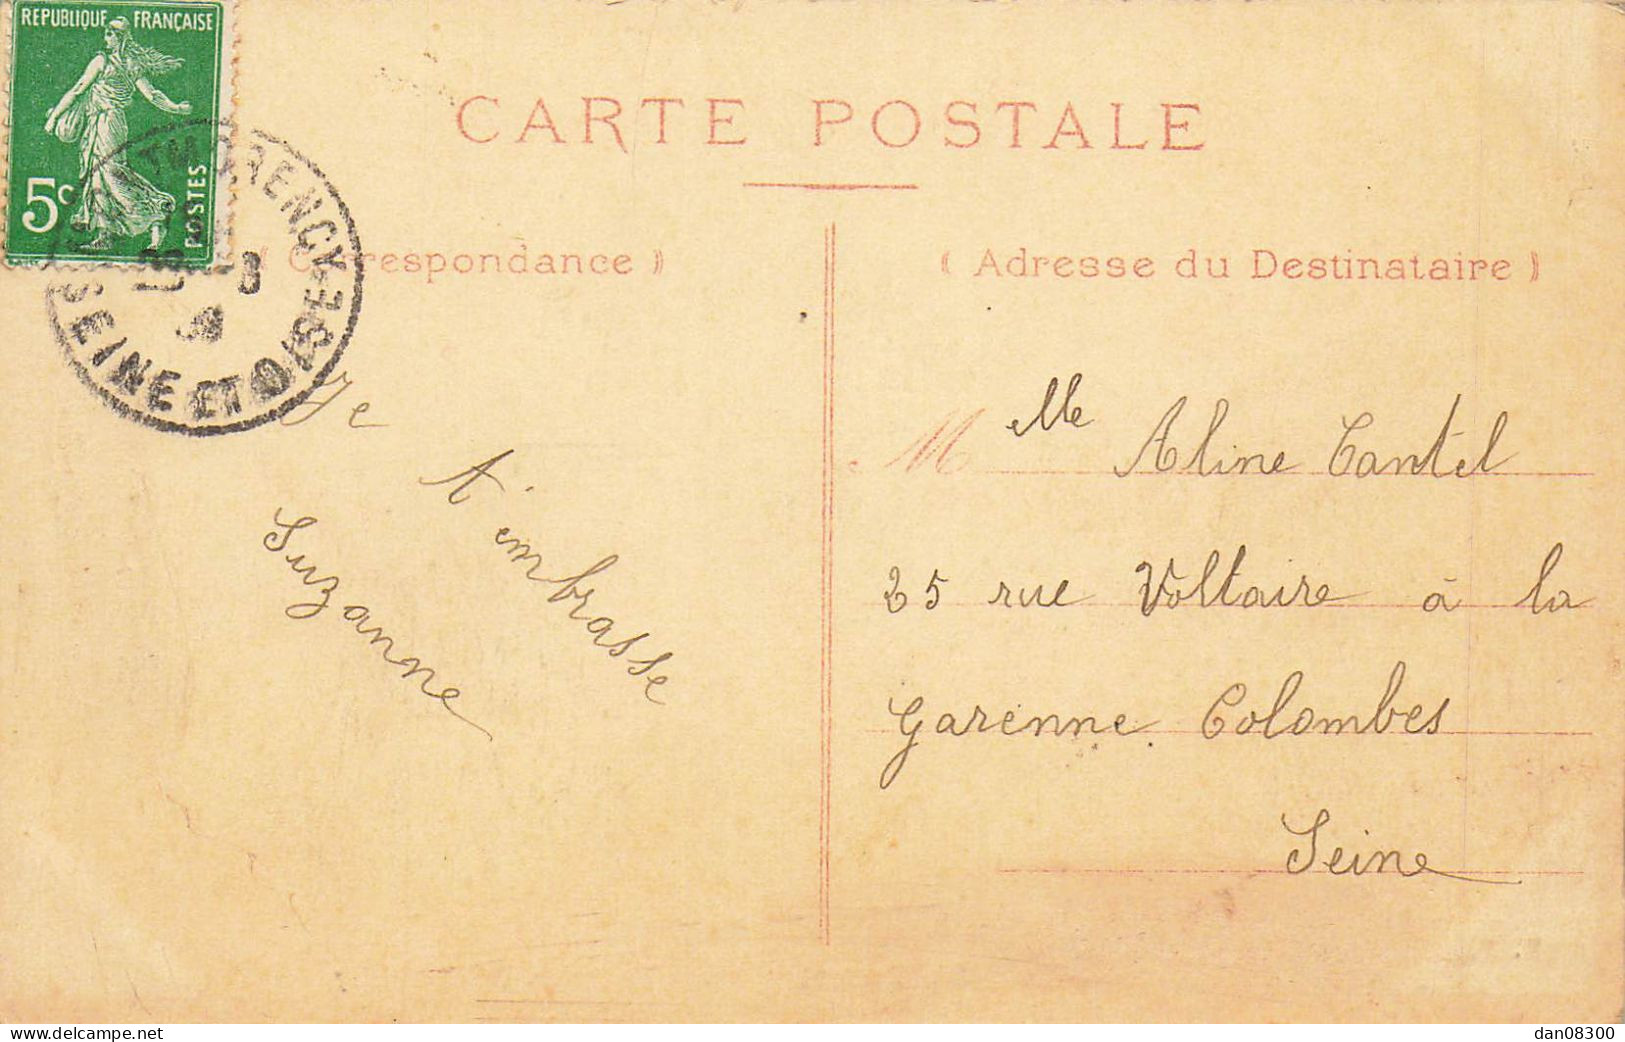 REPUBLIQUE FRANÇAISE
5c
POSTES
MONTMORENCY
SEINE ET OISE
CARTE POSTALE
( Correspondance )
( Adresse du Destinataire )
Je
t'embrasse
Suzanne
M Mlle Aline Cantel
25 rue Voltaire à la
Garenne Colombes
Seine
delcampe.net
dan08300